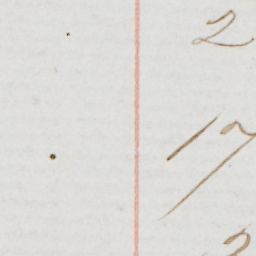 2
17
2